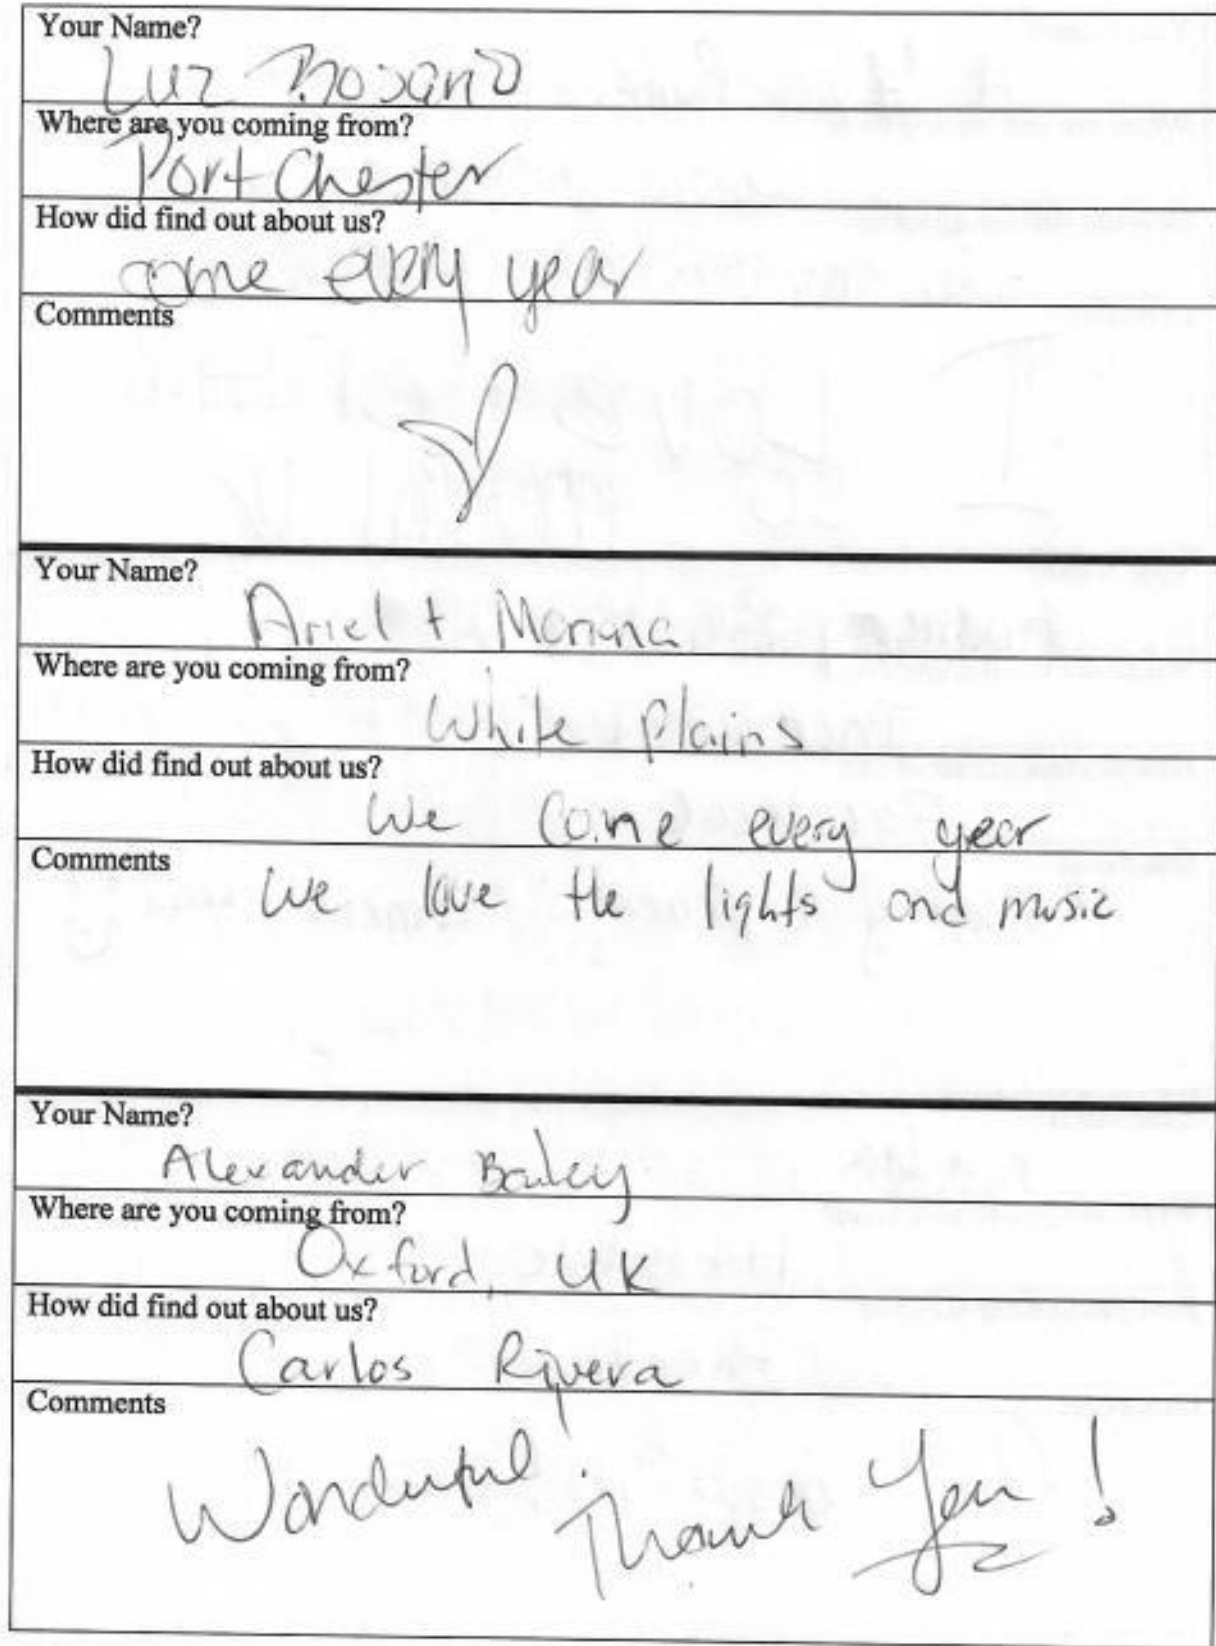 Your Name?
Luz
Where are you coming from?
Port Chester
How did find out about us?
come every year
Comments
Your Name?
Ariel + Mariana
Where are you coming from?
White Plains
How did find out about us?
We come every year
Comments
We love the lights and music
Your Name?
Alexander Bailey
Where are you coming from?
Oxford, UK
How did find out about us?
Carlos Rivera
Comments
Wonderful!
Thank You!